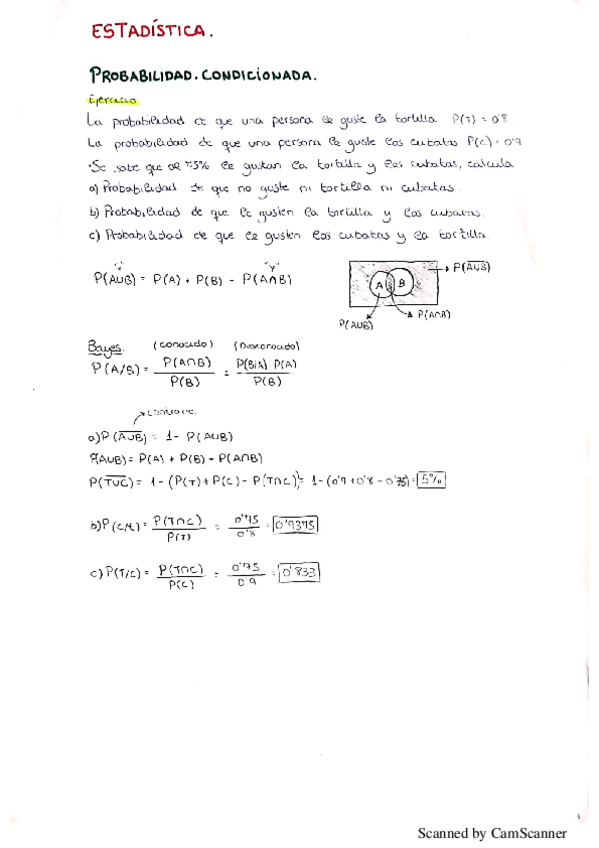 ESTADÍSTICA.
PROBABILIDAD. CONDICIONADA.
Ejercicio
La probabilidad de que una persona le guste la tortilla P(T) = 0'8
La probabilidad de que una persona le guste los cubatas P(C) = 0'9
·Se sabe que al 75% le gustan la tortilla y los cubatas, calcula
a) Probabilidad de que no guste ni tortilla ni cubatas.
b) Probabilidad de que le gusten la tortilla y los cubatas.
c) Probabilidad de que le gusten los cubatas y la tortilla.
"y"
P(A∪B) = P(A) + P(B) - P(A∩B)
A B
P(A̅∪̅B̅)
P(A∩B)
P(A∪B)
Bayes. (conocido) (Desconocido)
P(A/B) = P(A∩B) / P(B) = P(B/A) P(A) / P(B)
a) P(A̅∪̅B̅) = 1 - P(A∪B)
P(A∪B) = P(A) + P(B) - P(A∩B)
P(T̅∪̅C̅) = 1 - (P(T) + P(C) - P(T∩C)) = 1 - (0'9 + 0'8 - 0'75) = 5%
b) P(C/t) = P(T∩C) / P(T) = 0'75 / 0'8 = 0'9375
c) P(T/C) = P(T∩C) / P(C) = 0'75 / 0'9 = 0'833
Scanned by CamScanner